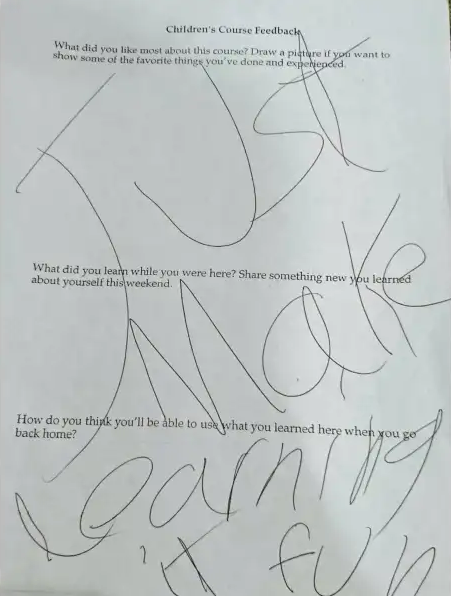 Children's Course Feedback
What did you like most about this course? Draw a picture if you want to
show some of the favorite things you've done and experienced.
Just
What did you learn while you were here? Share something new you learned
about yourself this weekend.
Make
How do you think you'll be able to use what you learned here when you go
back home?
Learning
it fun